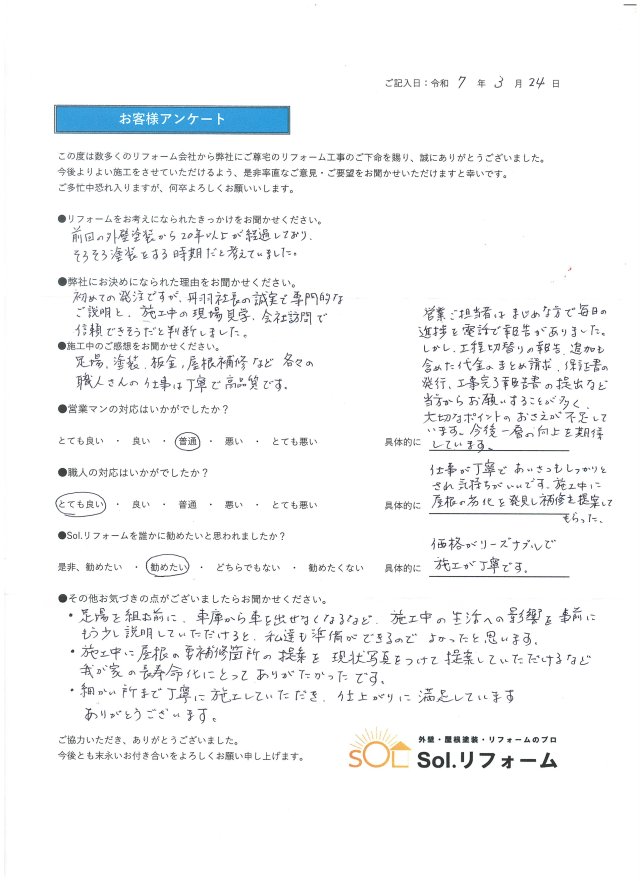 ご記入日：令和 7 年 3 月 24 日
お客様アンケート
この度は数多くのリフォーム会社から弊社にご尊宅のリフォーム工事のご下命を賜り、誠にありがとうございました。
今後よりよい施工をさせていただけるよう、是非率直なご意見・ご要望をお聞かせいただけますと幸いです。
ご多忙中恐れ入りますが、何卒よろしくお願いいします。
●リフォームをお考えになられたきっかけをお聞かせください。
前回の外壁塗装から20年以上が経過しており、
そろそろ塗装をする時期だと考えていました。
●弊社にお決めになられた理由をお聞かせください。
初めての発注ですが、丹羽社長の誠実で専門的な
ご説明と、施工中の現場見学、会社訪問で
信頼できそうだと判断しました。
●施工中のご感想をお聞かせください。
足場、塗装、板金、屋根補修など各々の
職人さんの仕事は丁寧で高品質です。
●営業マンの対応はいかがでしたか？
とても良い ・ 良い ・ 普通 ・ 悪い ・ とても悪い
具体的に
営業ご担当者はまじめな方で毎日の
進捗を電話で報告がありました。
しかし、工程切替りの報告、追加も
含めた代金のまとめ請求、保証書の
発行、工事完了報告書の提出など
当方からお願いすることが多く、
大切なポイントのおさえが不足して
います。今後一層の向上を期待
しています。
●職人の対応はいかがでしたか？
とても良い ・ 良い ・ 普通 ・ 悪い ・ とても悪い
具体的に
仕事が丁寧であいさつもしっかりと
され気持ちがいいです。施工中に
屋根の劣化を発見し補修を提案して
もらった。
●Sol.リフォームを誰かに勧めたいと思われましたか？
是非、勧めたい ・ 勧めたい ・ どちらでもない ・ 勧めたくない
具体的に
価格がリーズナブルで
施工が丁寧です。
●その他お気づきの点がございましたらお聞かせください。
・足場を組む前に、車庫から車を出せなくなるなど、施工中の生活への影響を事前に
もう少し説明していただけると、私達も準備ができるのでよかったと思います。
・施工中に屋根の要補修箇所の提案を現状写真をつけて提案していただけるなど
我が家の長寿命化にとってありがたかったです。
・細かい所まで丁寧に施工していただき、仕上がりに満足しています
ありがとうございます。
ご協力いただき、ありがとうございました。
今後とも末永いお付き合いをよろしくお願い申し上げます。
SOL
外壁・屋根塗装・リフォームのプロ
Sol.リフォーム